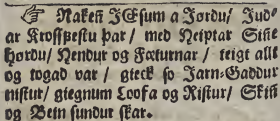 ☞ Naken JEsum a Jørdu/ Jud⸗
ar Krossfestu þar/ med Neiptar Sine
hørdu/ Hendur og Fæturnar/ teigt allt
og togad var/ gieck so Jarn⸗Gaddur
nistur/ giegnum Loofa og Ristur/ Skin
og Bein sundur skar.